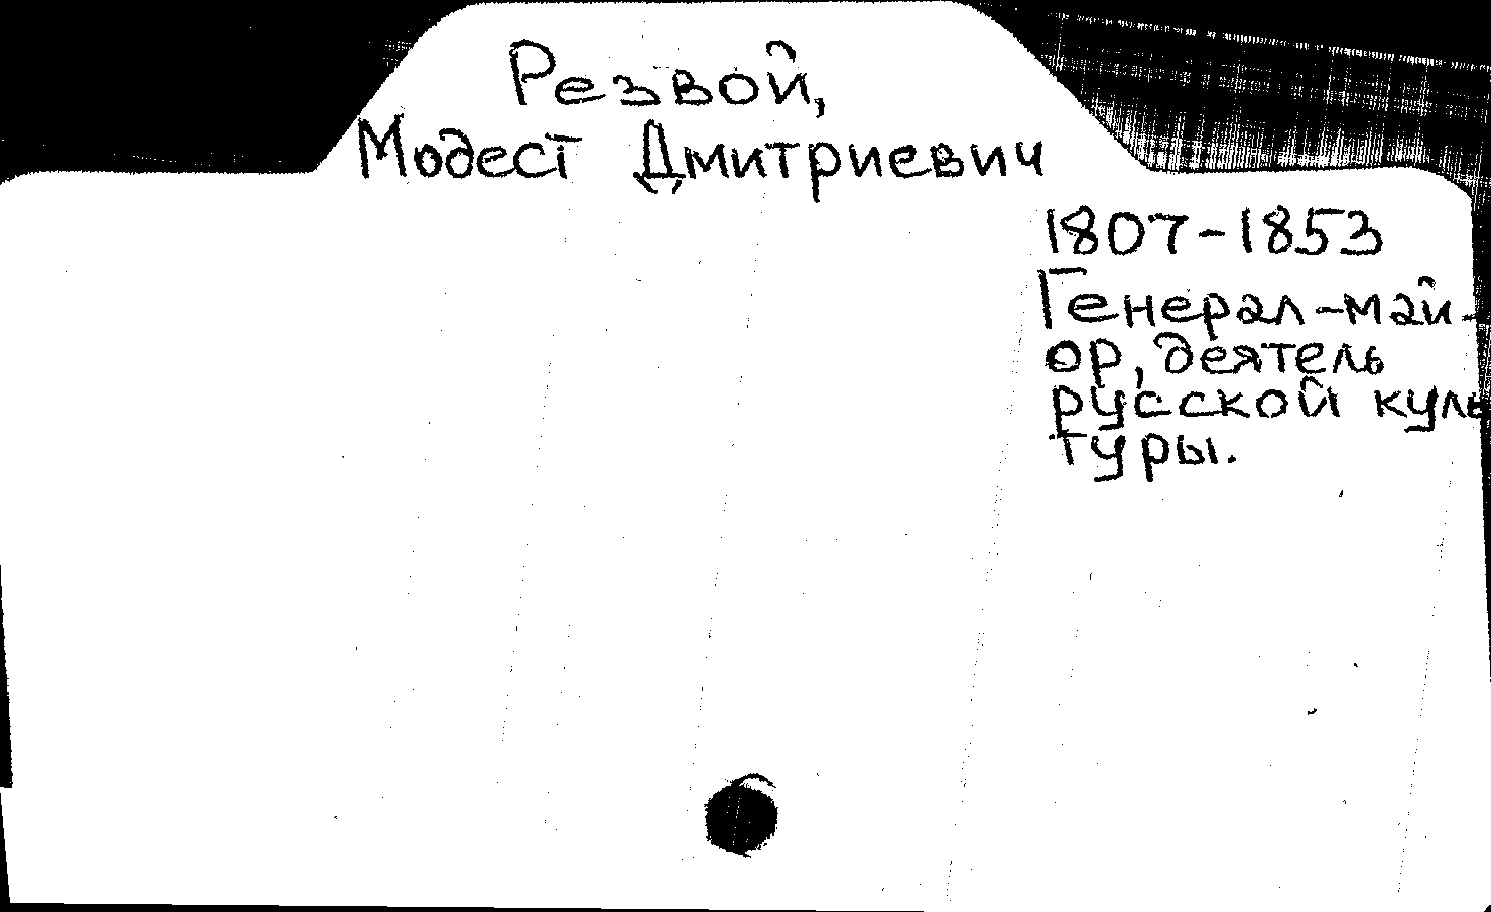 Резвой,
Модест Дмитриевич
1807-1853
Генерал-май-
ор, деятель
русской куль
туры.